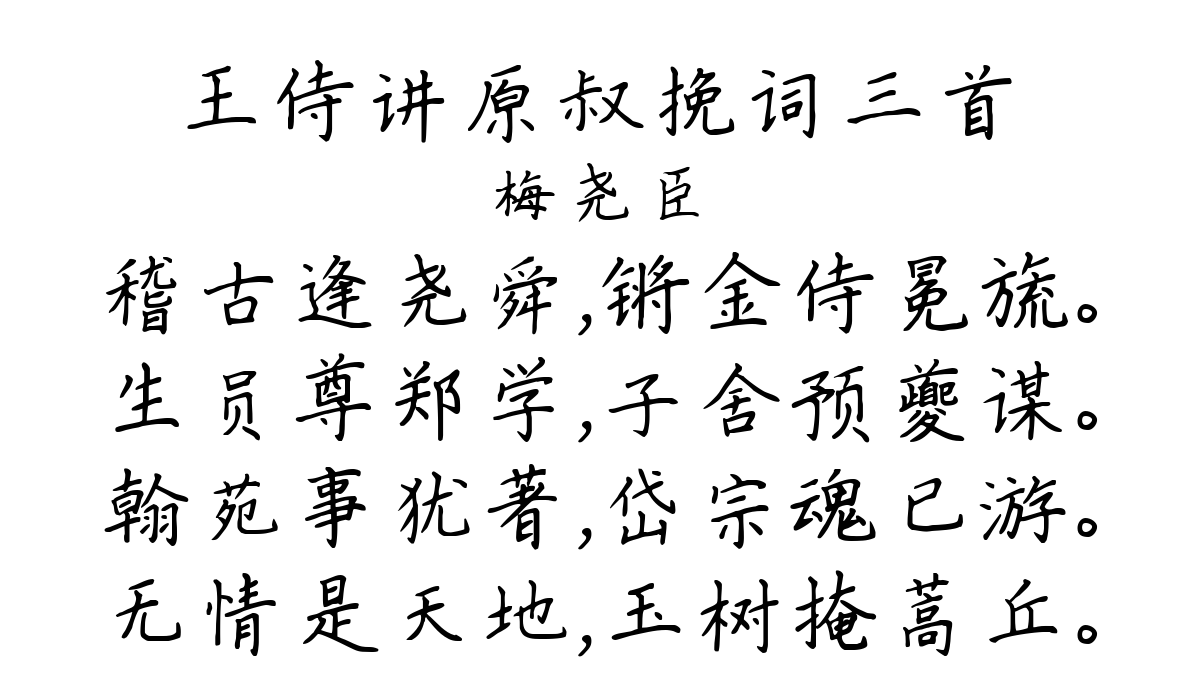 王侍讲原叔挽词三首
梅尧臣
稽古逢尧舜,锵金侍冕旒。
生员尊郑学,子舍预夔谋。
翰苑事犹著,岱宗魂已游。
无情是天地,玉树掩蒿丘。